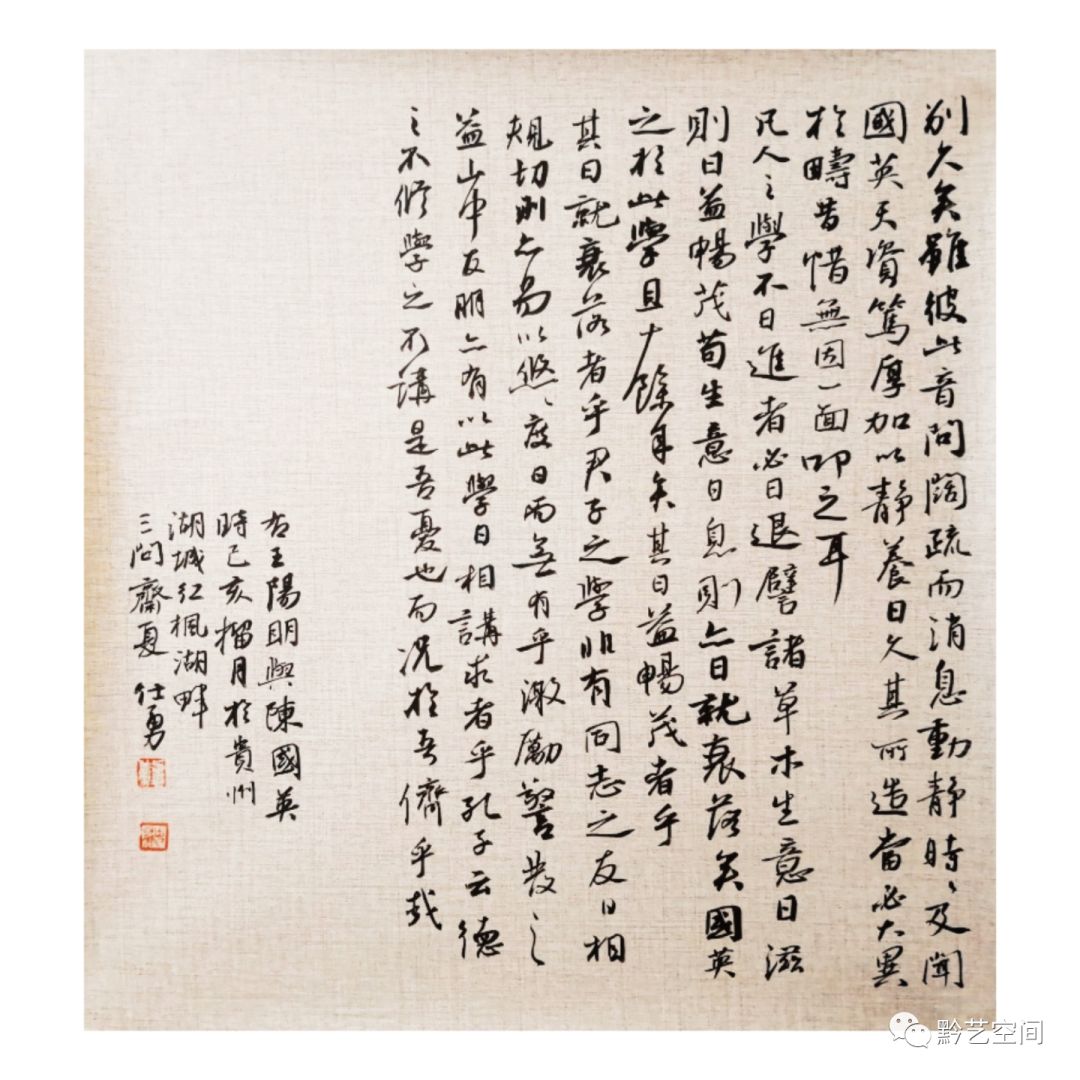 別久矣雖彼此音問闊疏而消息動靜時〻及聞
國英天資篤厚加以靜養日久其所造當必大異
於疇昔惜無因一面叩之耳
凡人之學不日進者必日退譬諸草木生意日滋
則日益暢茂苟生意日息則亦日就衰落矣國英
之於此學且十餘年矣其日益暢茂者乎
其日就衰落者乎君子之學非有同志之友日相
規切則亦易以悠〻度日而無有乎激勵警發之
益山中友朋亦有以此學日相講求者乎孔子云德
之不修學之不講是吾憂也而況於吾儕乎哉
右王陽明與陳國英
時己亥榴月於貴州
湖城紅楓湖畔
三問齋夏仕勇
黔艺空间